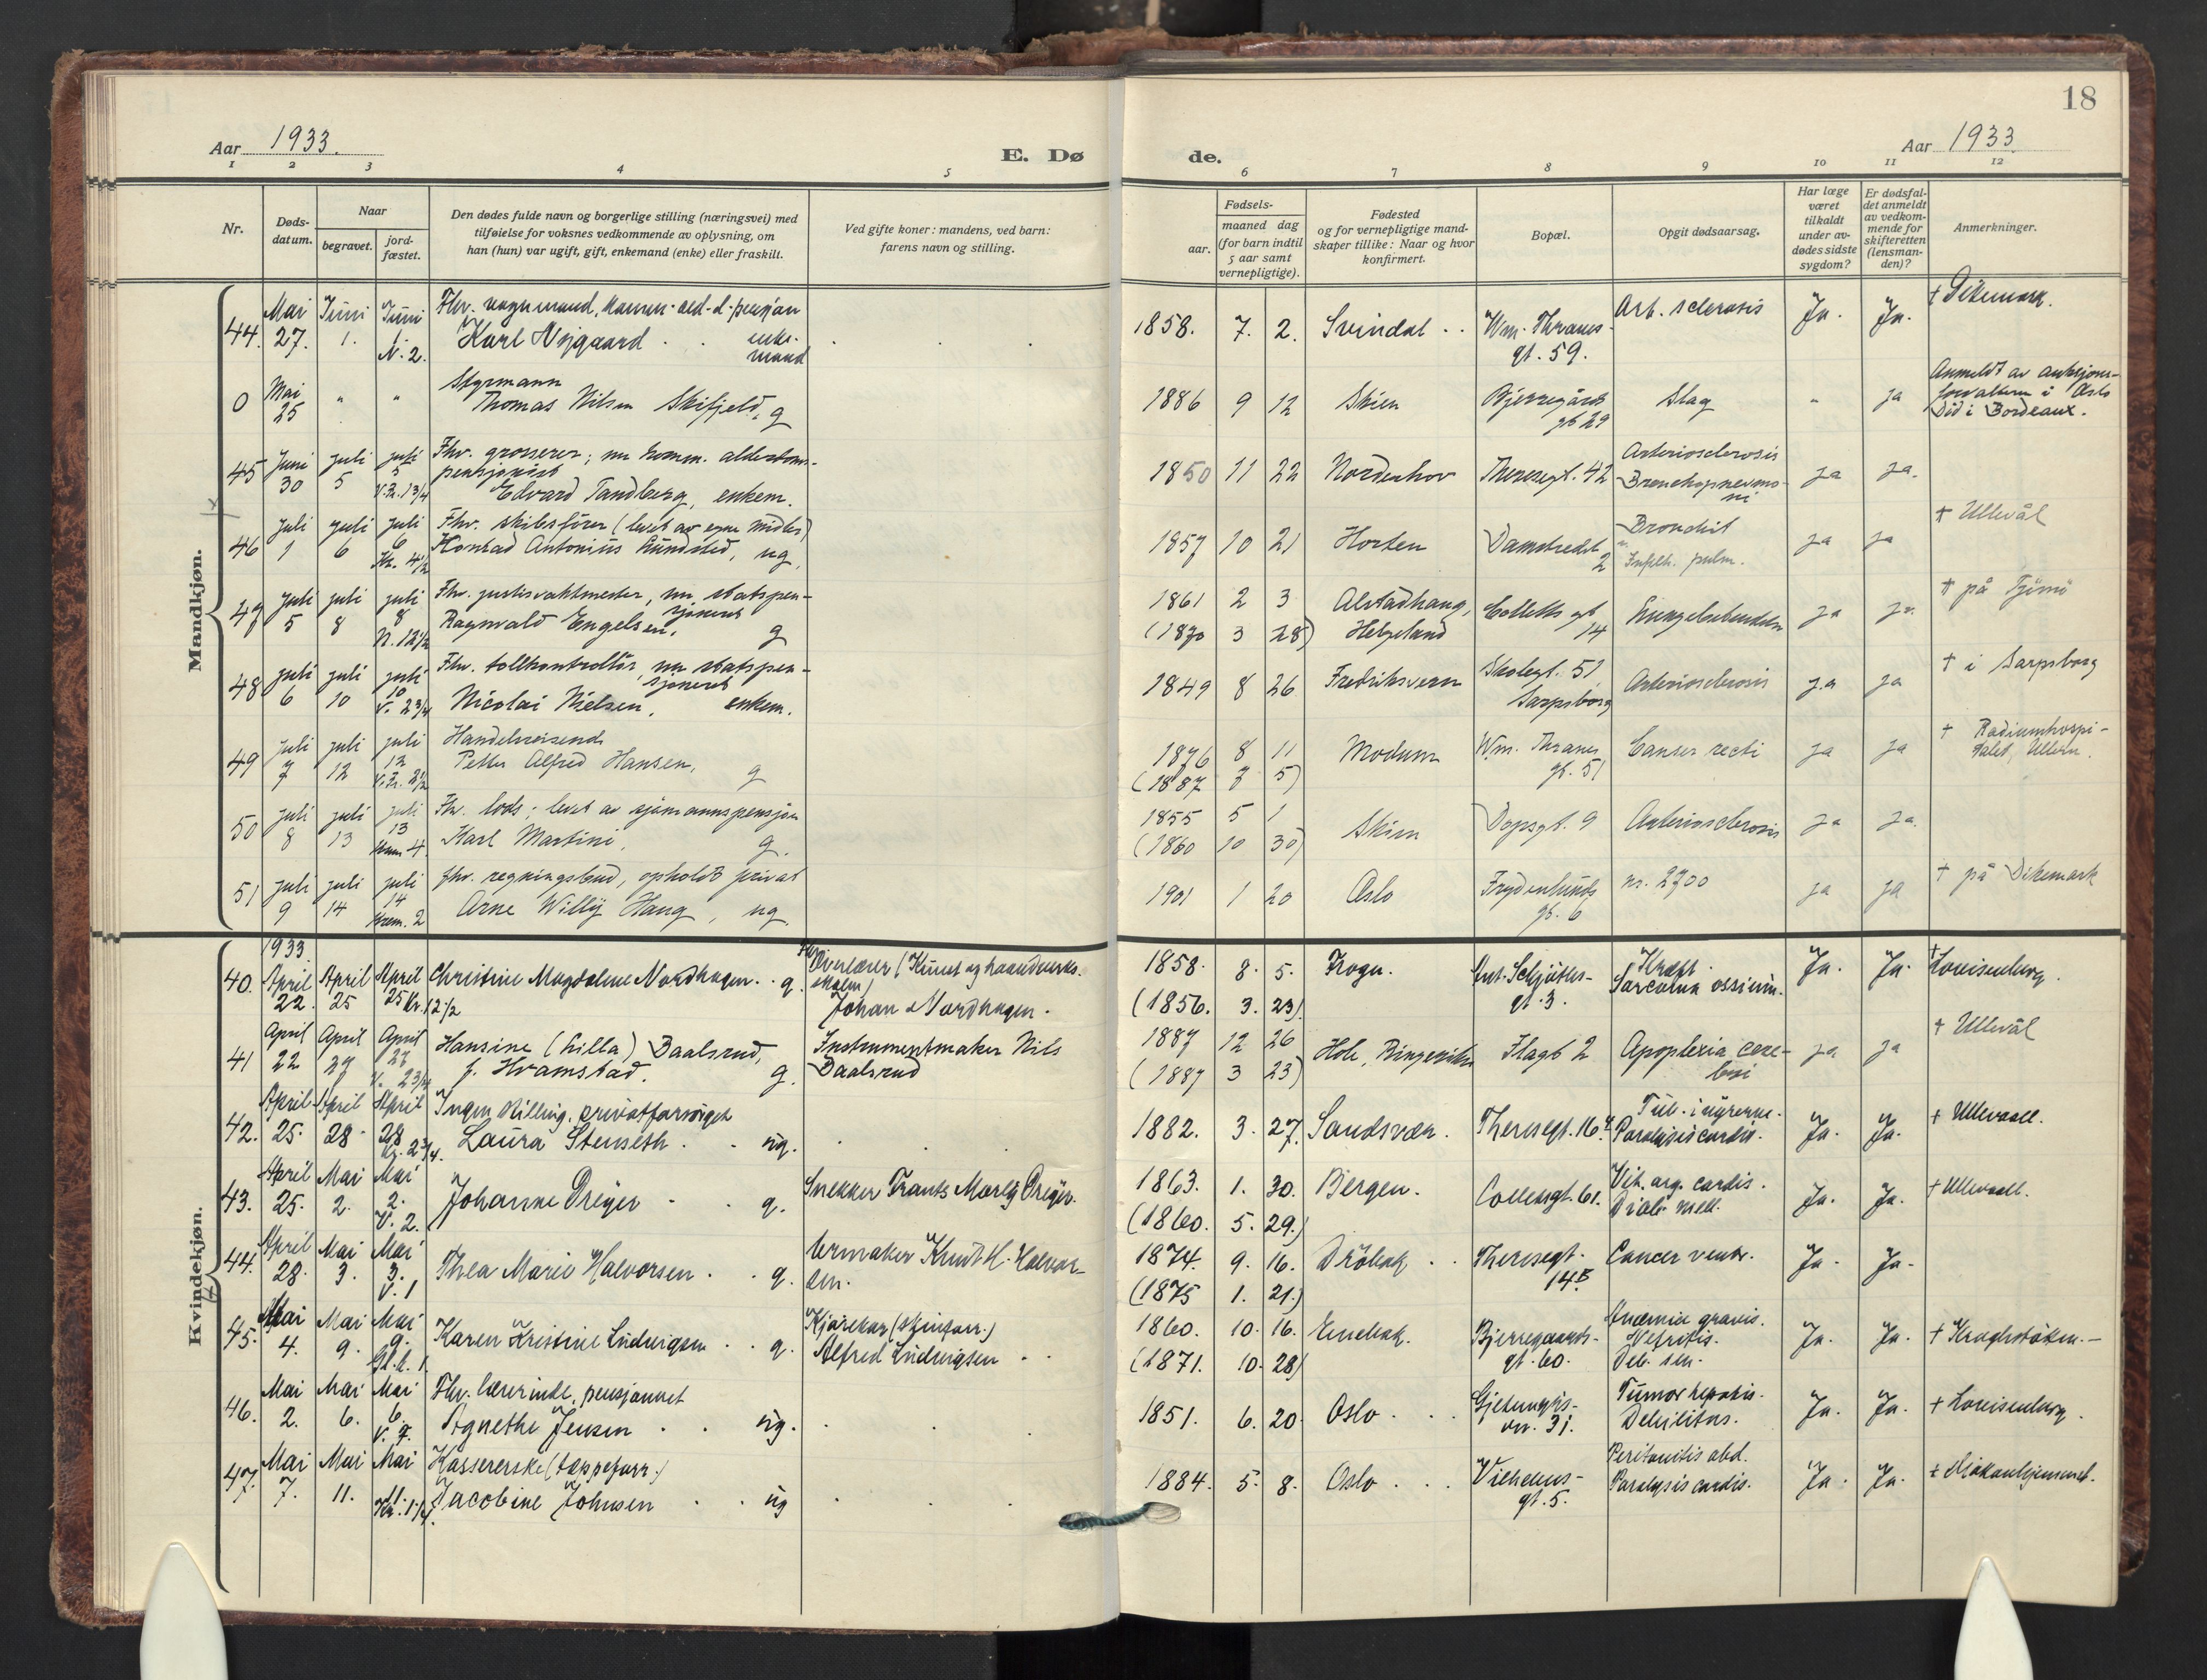 18
Aar 1933.
E. Dø
de.
Aar 1933.
1 2 3 4 5 6 7 8 9 10 11 12
Nr.
Døds-
datum.
Naar
begravet.
jord-
fæstet.
Den dødes fulde navn og borgerlige stilling (næringsvei) med
tilføielse for voksnes vedkommende av oplysning, om
han (hun) var ugift, gift, enkemand (enke) eller fraskilt.
Ved gifte koner: mandens, ved barn:
farens navn og stilling.
Fødsels-
aar.
maaned dag
(for barn indtil
5 aar samt
vernepligtige).
Fødested
og for vernepligtige mand-
skaper tillike: Naar og hvor
konfirmert.
Bopæl.
Opgit dødsaarsag.
Har læge
været
tilkaldt
under av-
dødes sidste
sygdom?
Er dødsfal-
det anmeldt
av vedkom-
mende for
skifteretten
(lensman-
den)?
Anmerkninger.
Mandkjøn.
44. Mai 27. Juni 1. Juni 1. N. 2.
Fhv. vognmand,
Karl Nygaard . . enke-
mand
1858. 7. 2. Svindal . . Wm. Thranes-
gt. 59. Art. sclerosis Ja. Ja. + Dikemark.
0 Mai 25 " "
Styrmann
Thomas Nilsen Skifjeld, g
1886 9 12 Skien Bjerregårds
gt 29 Slag " ja Anmeldt av auksjons-
forvalteren i Oslo
Död i Bordeaux.
45 Juni 30 juli 5 juli 5 V.Fr. 1 3/4
Fhv. grosserer; nu komm. alderdoms-
pensjonist
Edvard Tandberg, enkem.
1850 11 22 Norderhov Theresegt. 42 Arteriosclerosis
Bronchopnevmo-
ni ja ja.
46 Juli 1 juli 6 juli 6 Kr. 4 1/2
Fhv. skibsförer (levet av egne midler)
Konrad Antonius Lundsted, ug.
1857 10 21 Horten Damstredet
2 Bronchit
Infilt. pulm. ja ja + Ullevål
47 Juli 5 juli 8 juli 8 N. 12 1/2
Fhv. justisvaktmester, nu statspen-
sjonert
Ragnvald Engelsen, g
1861 2 3
(1870 3 28) Alstadhaug,
Helgeland Colletts gt
14 Lungebetendelse ja ja + på Tjömö
48 juli 6 juli 10 juli 10 V. 2 3/4
Fhv. tollkontrollör, nu statspen-
sjonert
Nicolai Nielsen, enkem.
1849 8 26 Fredriksvern Skolegt. 51
Sarpsborg Arteriosclerosis ja ja + i Sarpsborg
49 juli 7 juli 12 juli 12 V.Fr. 2 1/2
Handelsreisende
Petter Alfred Hansen, g
1876 8 11
(1887 7 5) Modum Wm. Thranes
gt. 51 Canser recti ja ja + Radiumhospi-
talet, Ullern.
50 juli 8 juli 13 juli 13 Krem 4.
Fhv. lods; levet av sjömannspensjon
Karl Martini, g.
1855 5 1
(1860 10 30) Skien Dopsgt. 9 Arteriosclerosis ja ja.
51 juli 9 juli 14 juli 14 Krem. 2
fhv. regningsbud, opholdt privat
Arne Willy Haug, ug.
1901 1 20 Oslo Frydenlunds
gt. 6 nr. 2700 ja ja + på Dikemark
Kvindekjøn.
1933
40. April 22. April 25 April 25 Kr. 12 1/2
Christine Magdalene Nordhagen . . g.
Fhv. Overlærer (Kunst og haandverks-
skolen)
Johan Nordhagen.
1858. 8. 5.
(1856. 3. 23) Frogn. Ant. Schjøtts-
gt. 3. Kræft.
Sarcoma ossium. Ja. Ja. + Lovisenberg.
41 April 22 April 27 April 27 V. 2 3/4
Hansine (Lilla) Baalsrud,
f. Hvamstad. g.
Instrumentmaker Nils
Baalsrud
1887 12 26
(1887 3 23) Hole, Ringerike Flagt 2 Apoplexia cere-
bri ja ja + Ullevål
42. April 25. April 28 April 28 Kr. 2 3/4.
Ingen stilling, privatforsørget
Laura Stenseth . . ug.
1882. 3. 27. Sandsvær. Theresegt. 16 Tub. i nyrerne.
Paralysis cordis. Ja. Ja. + Ullevaall.
43. April 25. Mai 2. Mai 2. V. 2.
Johanne Dreyer . . g.
Snekker Frants Møerly Dreyer.
1863. 1. 30.
(1860. 5. 29.) Bergen. Colletsgt. 61. Vit. org. cordis.
Diab. mell. Ja. Ja. + Ullevaall.
44. April 28. Mai 3. Mai 3. V. 1
Thea Marie Halvorsen . . g.
Urmaker Knut H. Halvor-
sen.
1874. 9. 16.
(1875 1. 21.) Drøbak . . Theresegt.
14B Cancer ventr. Ja. Ja.
45. Mai 4. Mai 9. Mai 9. Gl. k. 1.
Karen Kristine Ludvigsen . . g.
Kjørekar
Alfred Ludvigsen . .
1860. 10. 16.
(1871. 10. 28) Enebak. Bjerregaards-
gt. 60. Anæmia gravis.
Nefritis.
Deb. sen. Ja. Ja. + Kroghstøtten. —
46. Mai 2. Mai 6. Mai 6. V. 7.
Fhv. lærerinde, pensjonert
Agnethe Jensen . . ug.
1851. 6. 20. Oslo . . . Gjetemyrs-
vn. 31. Tumor hepatis.
Debilitas. Ja. Ja. + Lovisenberg.
47. Mai 7. Mai 11. Mai 11. Kr. 1 1/4.
Kassererske (tappeforr.)
Jacobine Johnsen . . ug
1884. 5. 8. Oslo . . . Vilhelms-
gt. 5. Peritonitis abd.
Paralysis cordis. Ja. Ja.